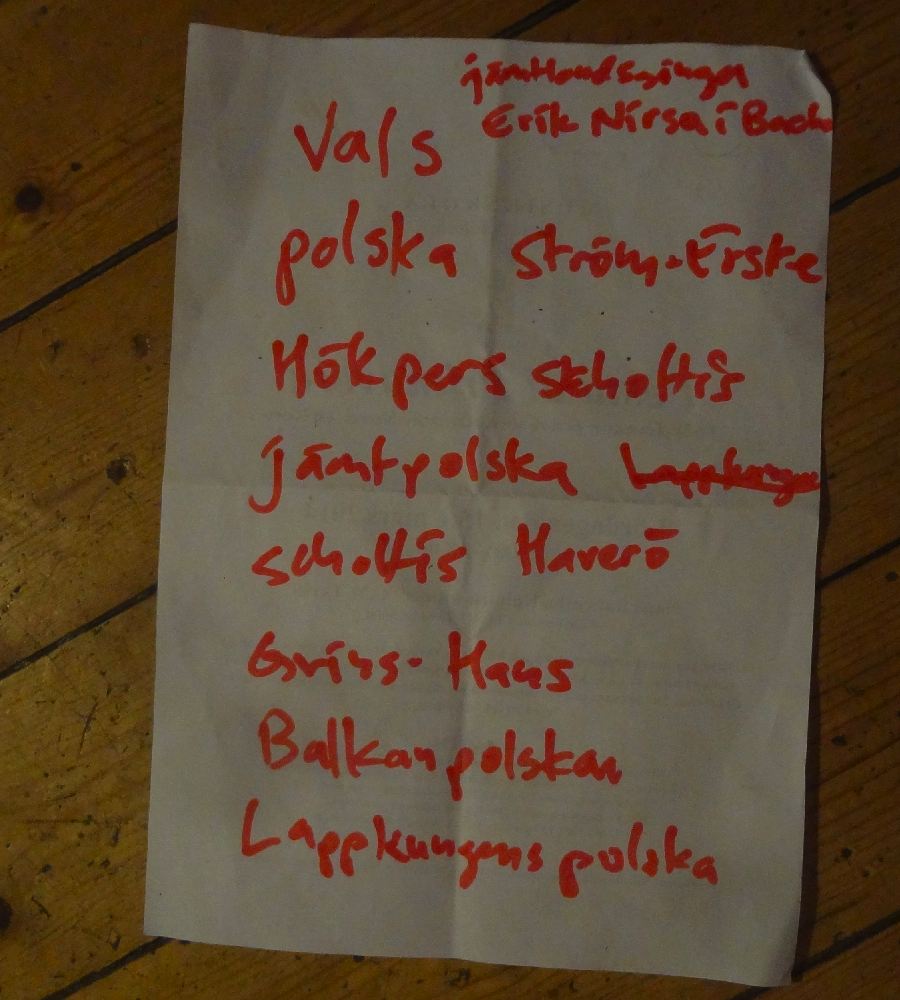 Vals
Erik Nirsa i Backa
polska Ström-Ērske
Hōkpers schottis
jāmtpolska Lappkunge
schottis Haverō
Grins-Hans
Balkanpolskan
Lappkungens polska